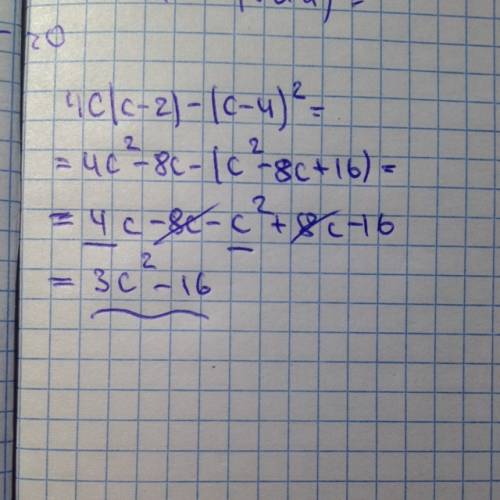 4c(c-2)-(c-4)²=
=4c²-8c-(c²-8c+16)=
=4c-8c-c²+8c-16
=3c²-16